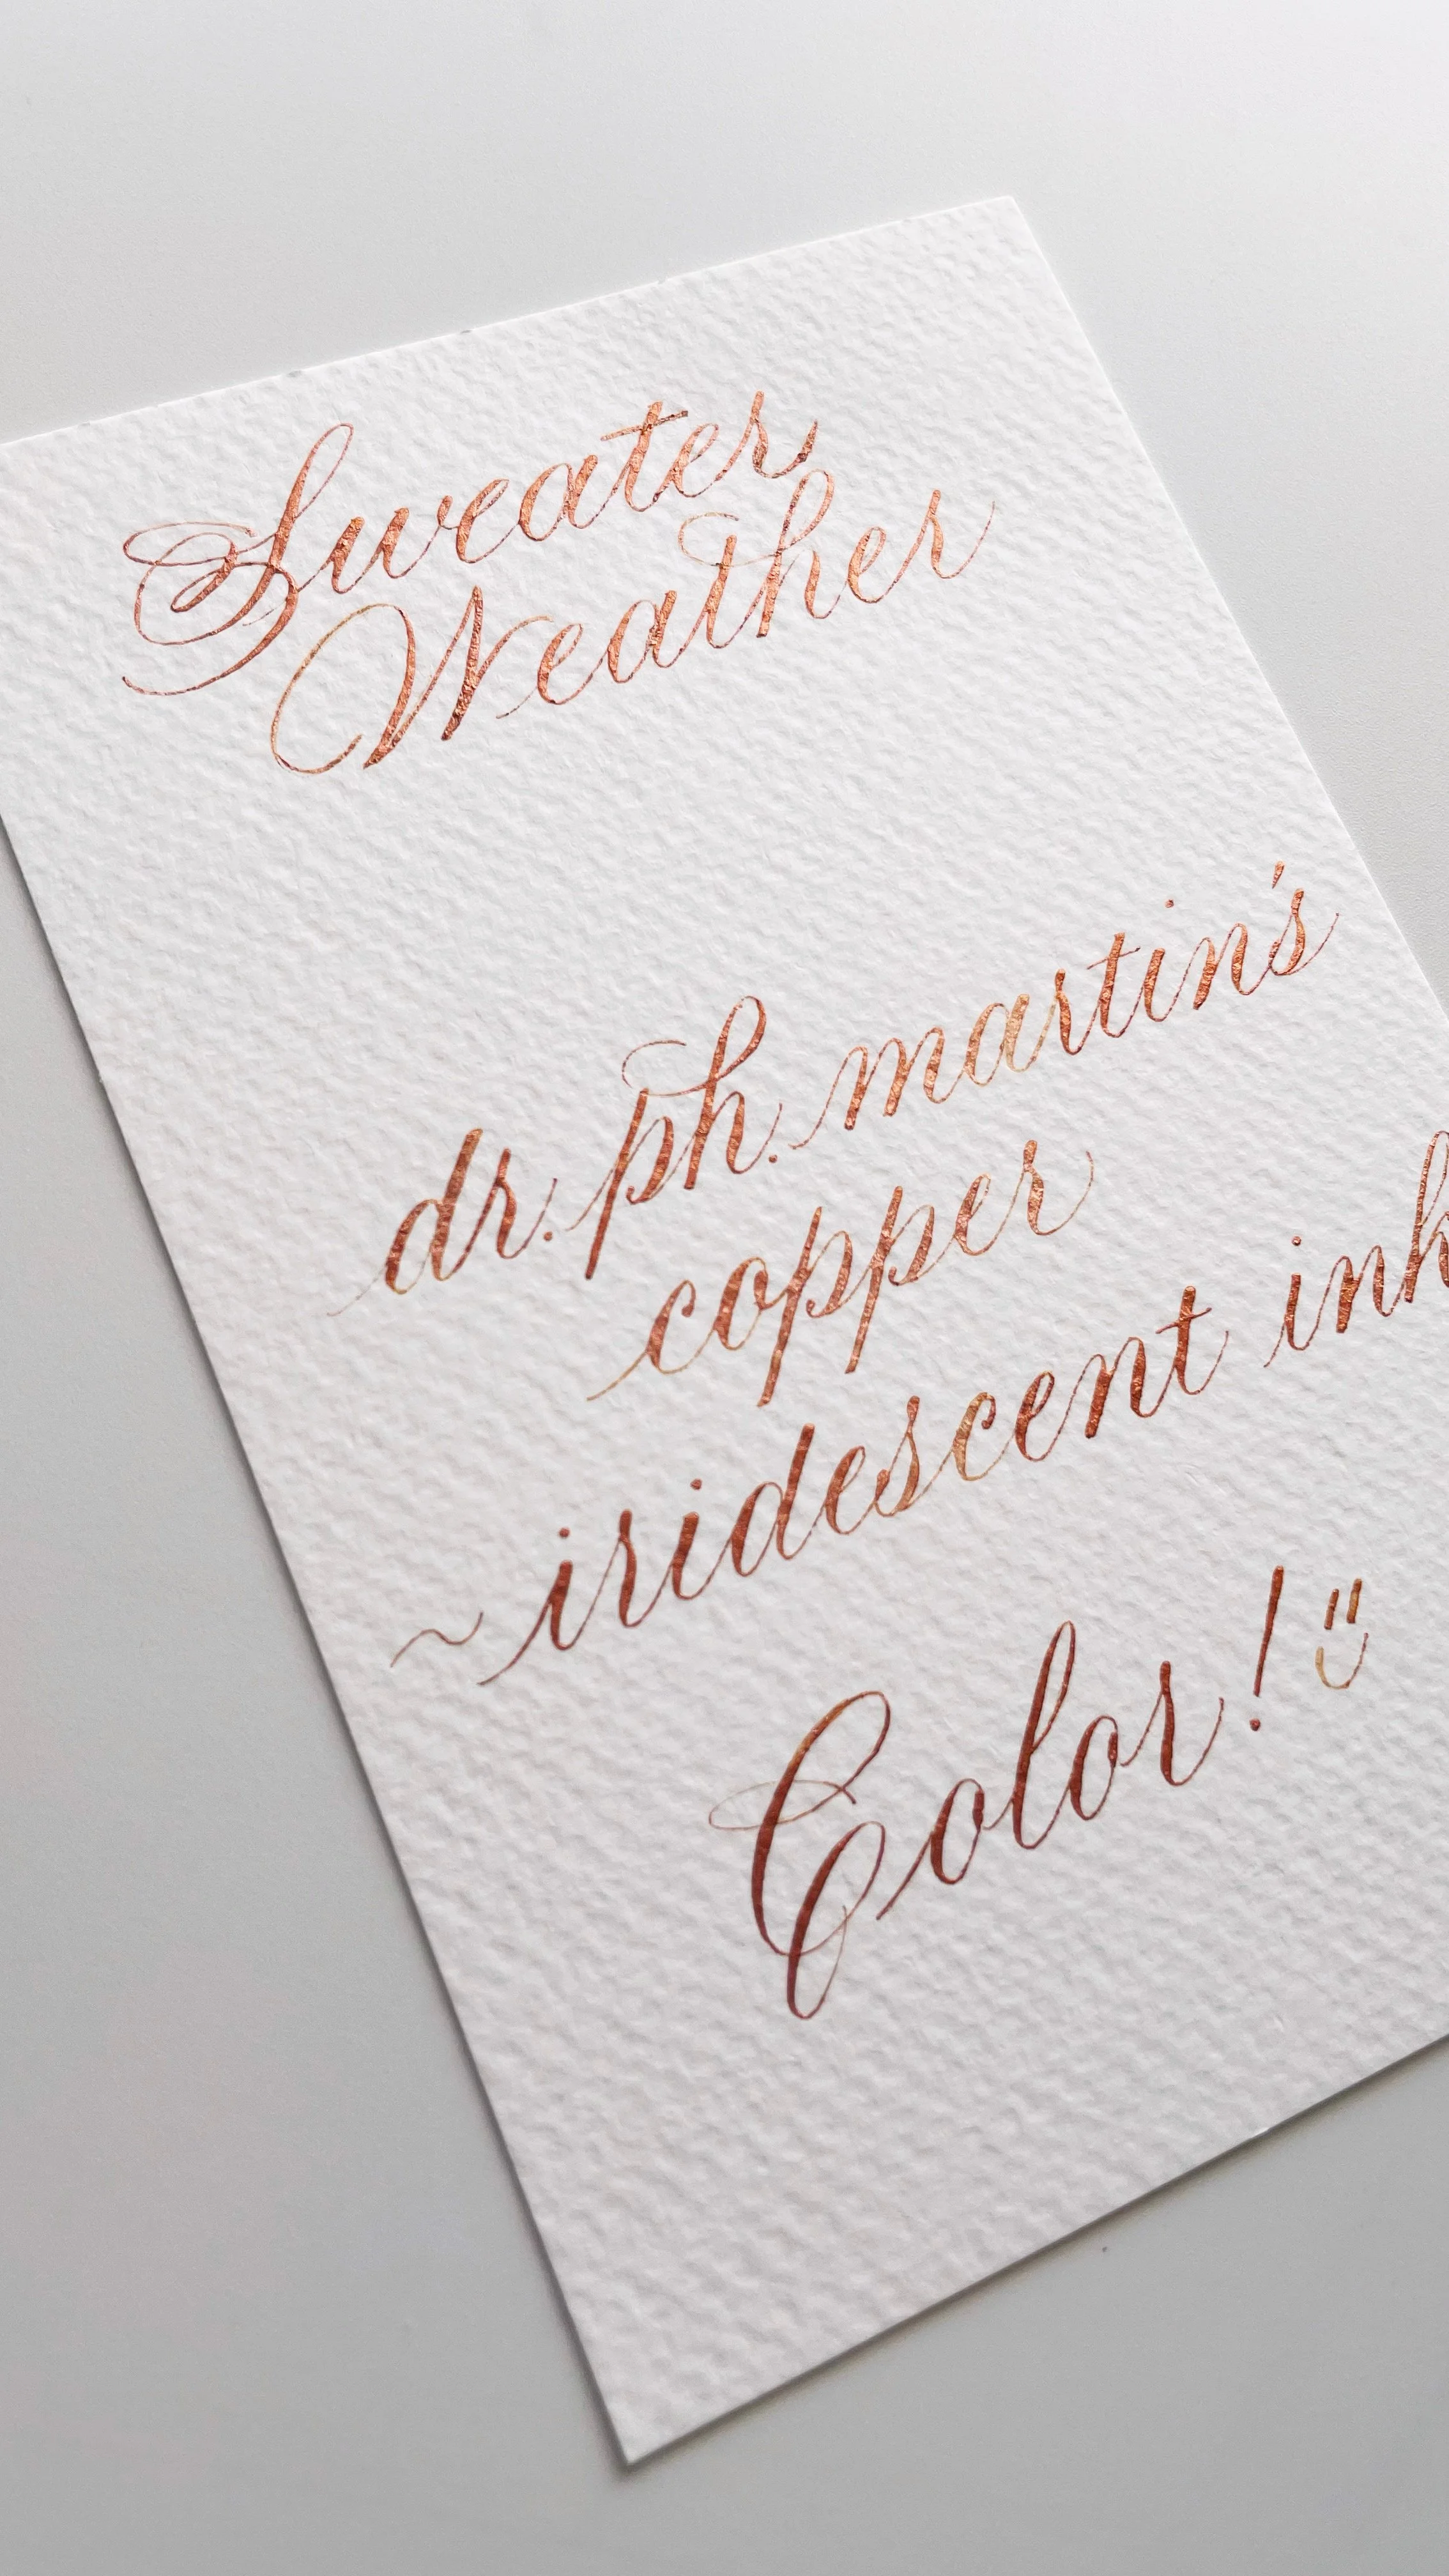 Sweater
Weather
dr. ph. martin's
copper
~ iridescent ink
Color! :)